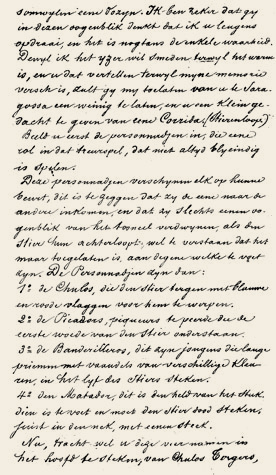 somwylen eene dozyn. Ik ben zeker dat gy
in dezen oogenblik denkt dat ik u leugens
opdraai, en het is nogtans de enkele waarheid.
Dewyl ik het yzer wil smeden terwyl het warm
is, en u dat vertellen terwyl myne memorie
versch is, zult gy my toelaten van u te Sara-
gossa een weinig te laten, en u een klein ge-
dacht te geven van eene Corrida, (Stierenloop).
Beeld u eerst de personnadjen in, die eene
rol in dat treurspel, dat niet altyd bly eindig
is spelen.
Deze personnadjen verschynen elk op hunne
beurt, dit is te zeggen dat zy de eene naar de
andere inkomen, en dat zy slechts eenen oo-
genblik van het tooneel verdwynen, als den
stier hun achterloopt, wel te verstaan dat het
maar toegelaten is, aan degene welke te voet
zyn. De Personnadjen zyn dan:
1° de Chulos, die den stier tergen met blauwe
en roode vlaggen voor hem te werpen.
2° de Picadors, piqueurs te peerde die de
eerste woede van den stier onderstaan.
3° de Banderilleros, dit zyn jongens die lange
priemen met vaandels van verschillige kleu-
ren, in het lyf des stiers steken.
4° den Matador, dit is den held van het stuk,
dien is te voet en moet den stier dood steken,
juist in den nek, met eenen steek.
Nu, tracht wel u deze vier namen in
het hoofd te steken, van Chulos tergers,